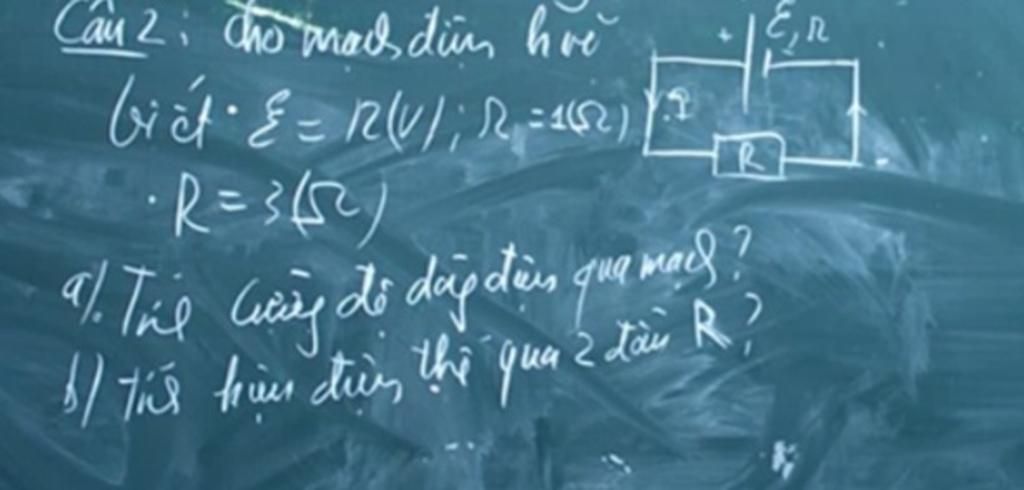 Câu 2: Cho mạch điện h vẽ
biết • ℰ = 12(V); r = 1(Ω)
• R = 3(Ω)
a). Tính cường độ dòng điện qua mạch?
b) Tính hiệu điện thế qua 2 đầu R?
+ ℰ, r
I
R
-